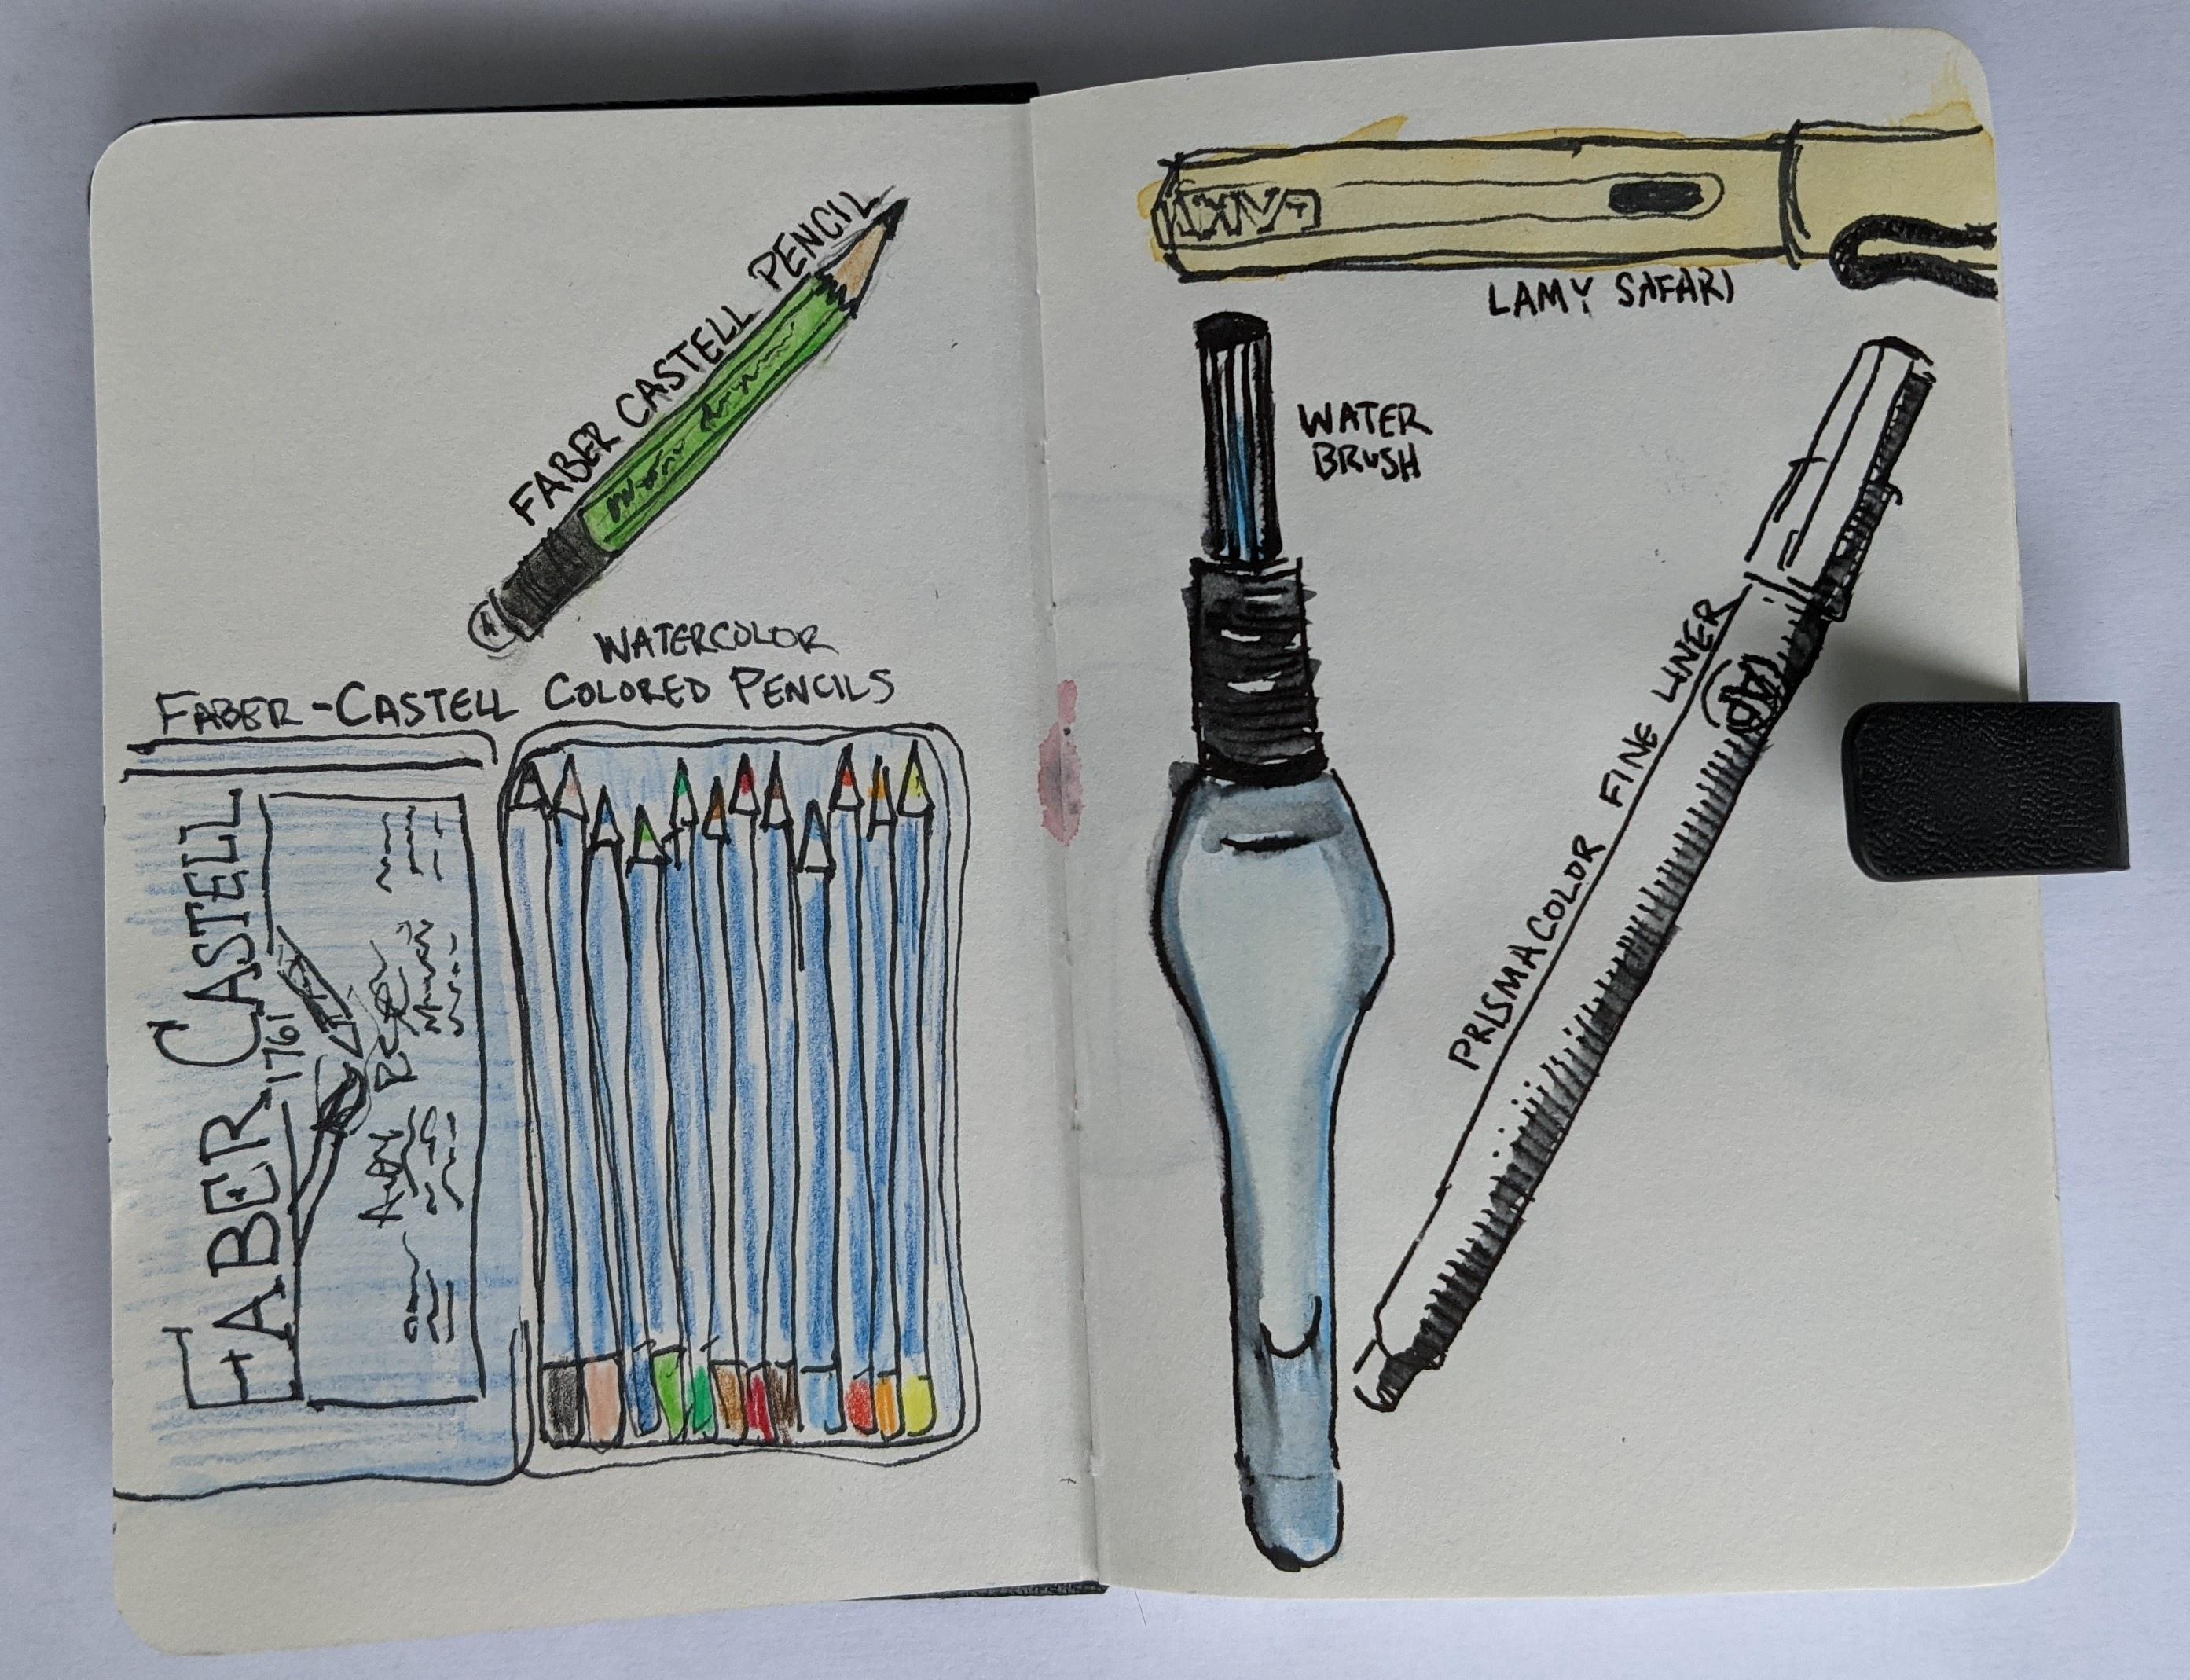 FABER CASTELL PENCIL
WATERCOLOR
FABER-CASTELL COLORED PENCILS
FABER CASTELL
1761
LAMY SAFARI
LAMY
WATER
BRUSH
PRISMACOLOR FINE LINER